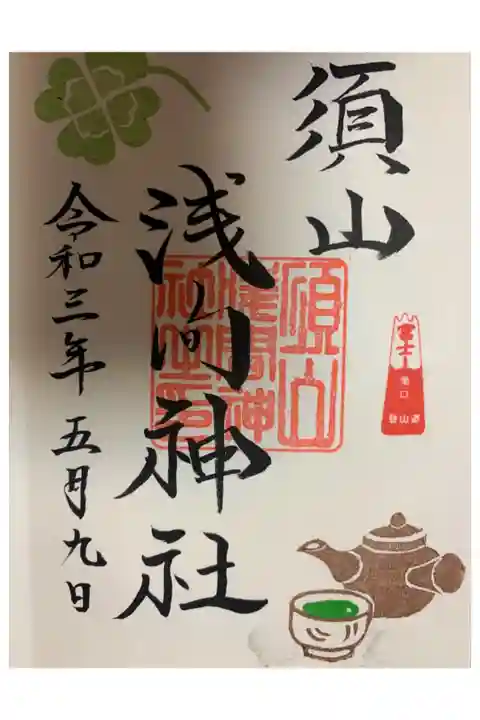 須山
浅间神社
令和三年五月九日
須山
浅間神
社之印
富士
登山道